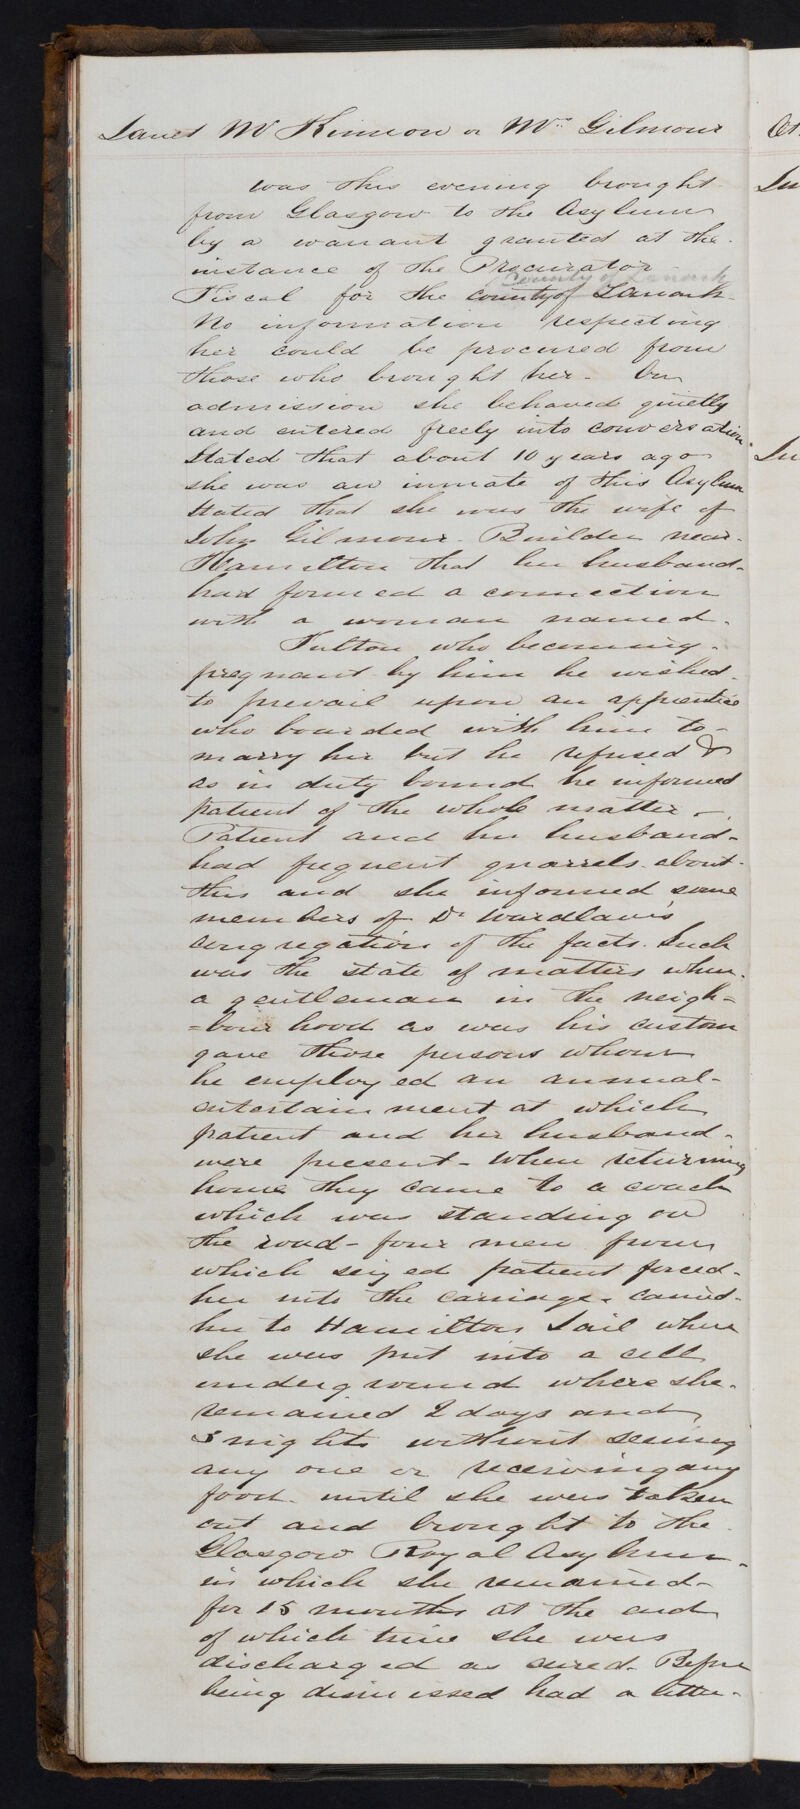 Janet McKinnon or Mrs Gilmour
was this evening brought
from Glasgow to the Asylum
by a warrant granted at the
instance of the Procurator
County of Lanark
Fiscal for the county of Lanark-
No information respecting
her could be procured from
those who brought her- On
admission she behaved quietly
and entered freely into conversation
Stated that about 10 years ago
she was an inmate of this Asylum
Stated that she was the wife of
John Gilmour. Builder near-
Hamilton that her husband-
had formed a connection
with a woman named-
Fulton who becoming-
pregnant by him he wished-
to prevail upon an apprentice
who boarded with him to-
marry her but he refused &
as in duty bound he informed
patient of the whole matter-
Patient and her husband-
had frequent quarrels about-
this and she informed some
members of Dr Wardlaw's
congregation of the facts. Such
was the state of matters when-
a gentleman in the neigh=
=bour hood as was his custom
gave those persons whom
he employed an annual-
entertainment at which
patient and her husband-
were present- When returning
home they came to a coach
which was standing on
the road- four men from
which seized patient forced-
her into the carriage- carried-
her to Hamilton Jail where
she was put into a cell
underground where she-
remained 2 days and
3 nights without seeing
any one or receiving any
food- until she was taken
out and brought to the
Glasgow Royal Asylum-
in which she remained-
for 15 months at the end
of which time she was
discharged as cured- Before
being dismissed had a letter-